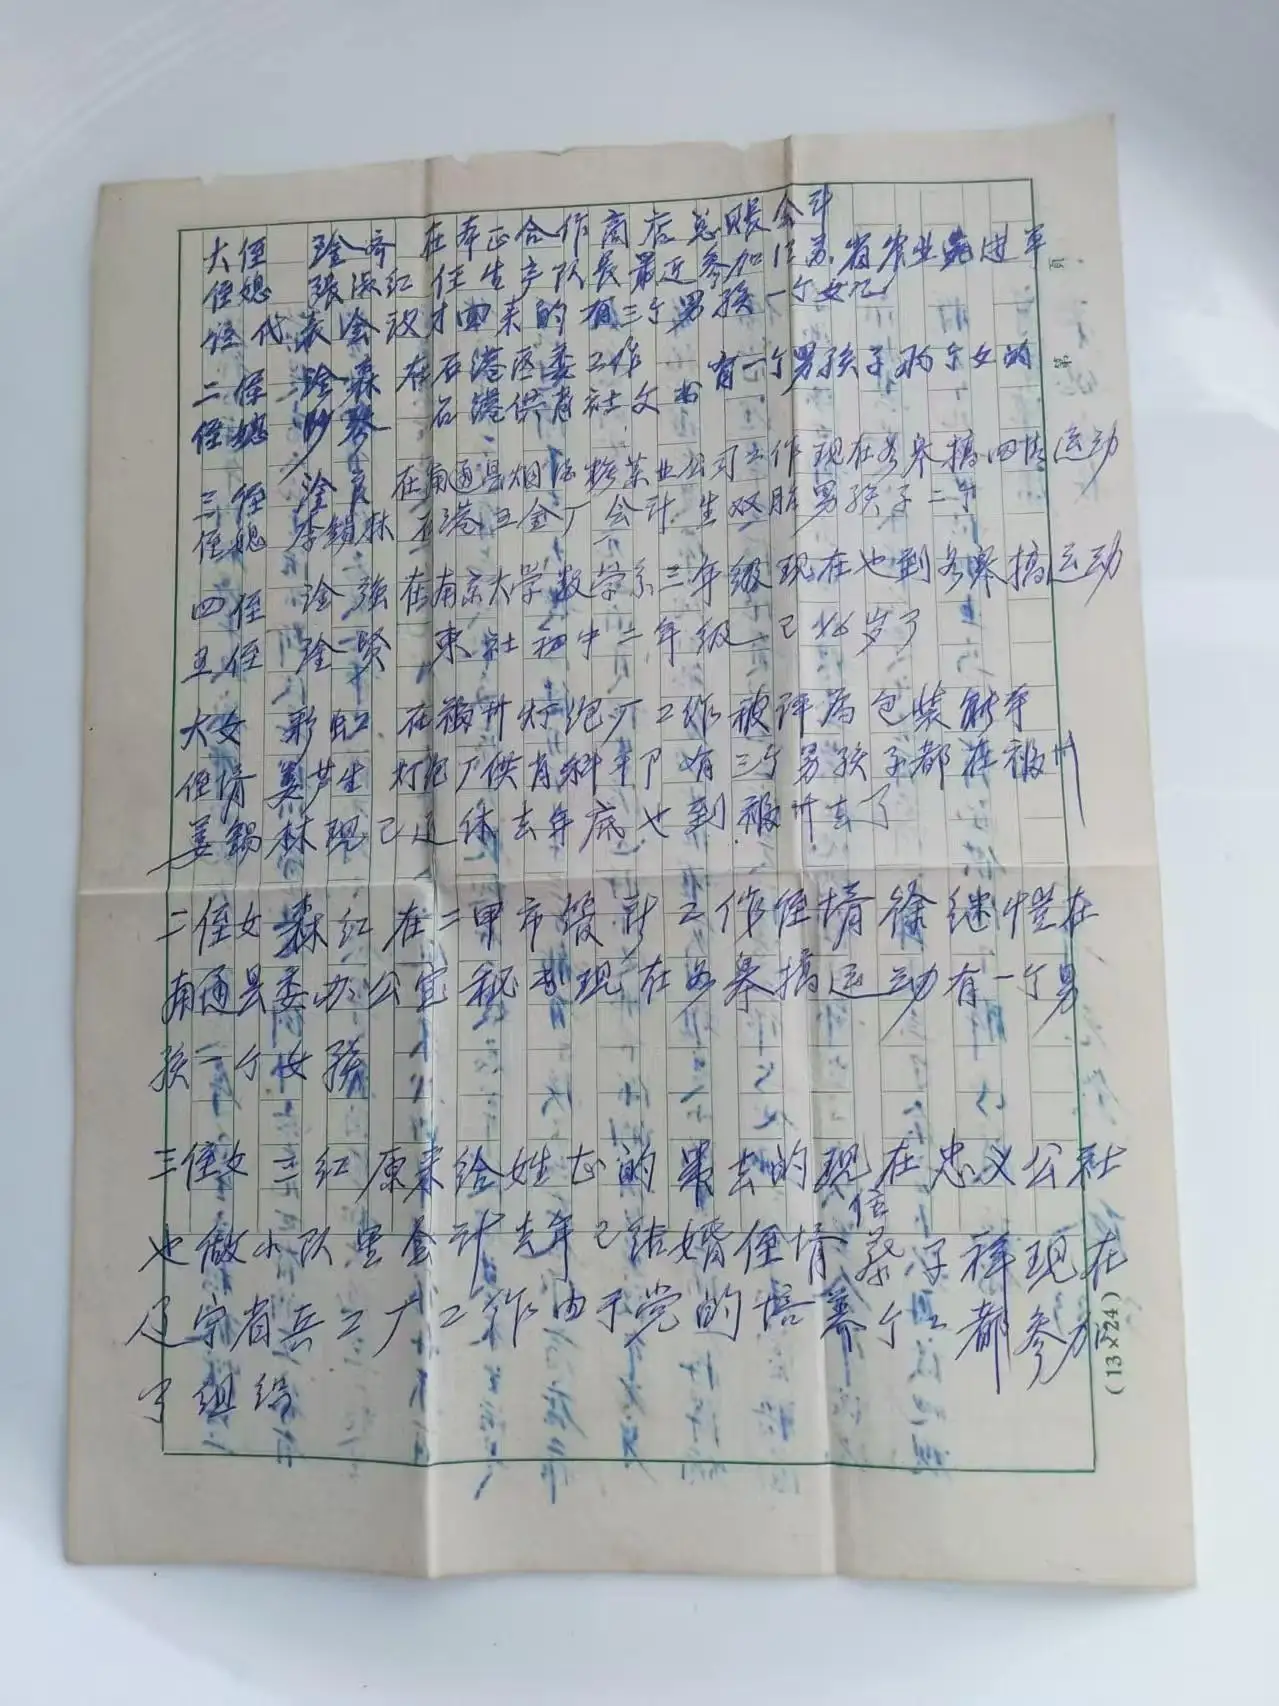 大侄 在 合作商店总账会计
侄媳 张淑红 任生产队长最近参加江苏省农业先进单
位代表会议才回来的有三个男孩一个女儿
二侄 淦森 在石港区委工作 有一个男孩子两个女的
侄媳 石港供销社文书
三侄 淦 在南通县烟酒 业公司工作现在 搞四清运动
侄媳 李锦林 石港五金厂会计 生双胎男孩子二个
四侄 淦强 在南京大学数学系三年级现在也到 搞运动
五侄 淦贤 东社初中二年级 已16岁了
大女 彩虹 在 州灯泡厂工作被评为包装能手
侄婿 姜芦生 灯泡厂供销科 有三个男孩子都在 州
姜锦林现已退休去年底也到 州去了
二侄女 森红 在二甲市 工作侄婿徐继恺在
南通县委办公室秘书现在 搞运动有一个男
孩一个女孩
三侄女 三红 原来给姓 的 去的现在忠义公社
信
也做小队里会计去年已结婚侄婿 祥现在
辽宁省兵工厂工作由于党的培养个个都参加
了组织
(13×24)